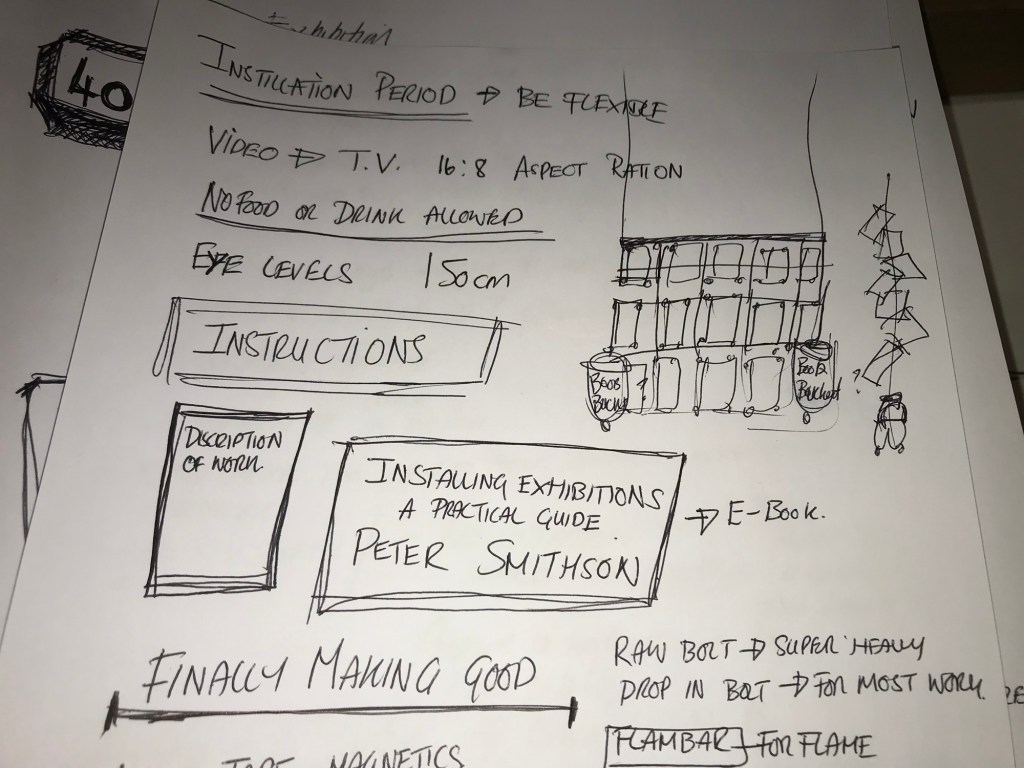 Exhibition
40
INSTILLATION PERIOD → BE FLEXIBLE
VIDEO → T.V. 16:8 ASPECT RATION
NO FOOD OR DRINK ALLOWED
EYE LEVELS 150cm
INSTRUCTIONS
DISCRIPTION
OF WORK
INSTALLING EXHIBITIONS
A PRACTICAL GUIDE
PETER SMITHSON
→ E-BOOK.
FINALLY MAKING GOOD
RAW BOLT → SUPER HEAVY
DROP IN BOLT → FOR MOST WORK.
FLAMBAR FOR FLAME
MAGNETICS